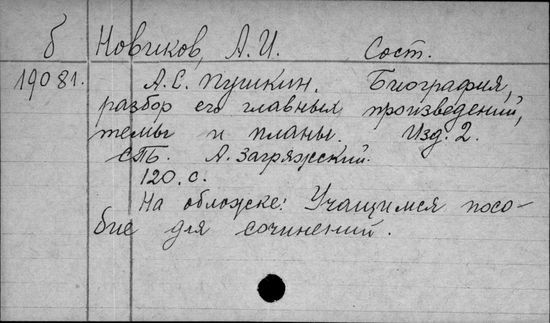 б Новиков, А.И. Сост.
19081. А.С. Пушкин. Биография,
разбор его главных произведений,
темы и планы. Изд. 2.
СПб. А. Загряжский.
120. с.
На обложке: Учащимся посо-
бие для сочинений.